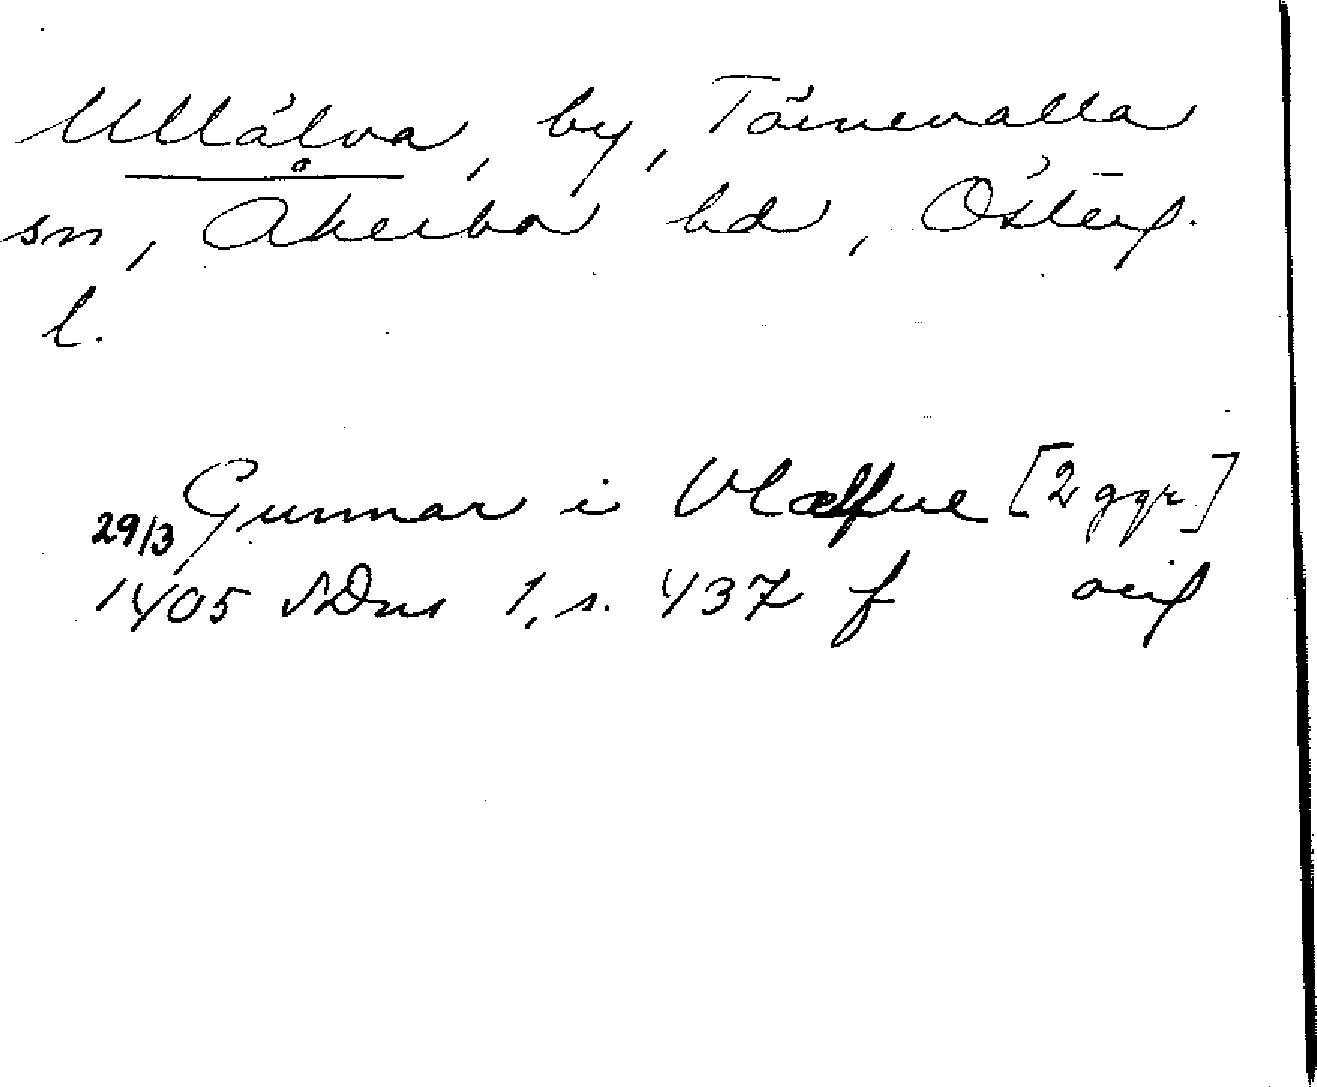 Ullälva, by, Törnevalla
sn, Åkerbo hd, Österg.
l.
Gunnar i Vlælfue [2 ggr]
29/3
1405 SDns 1, s. 437 f orig